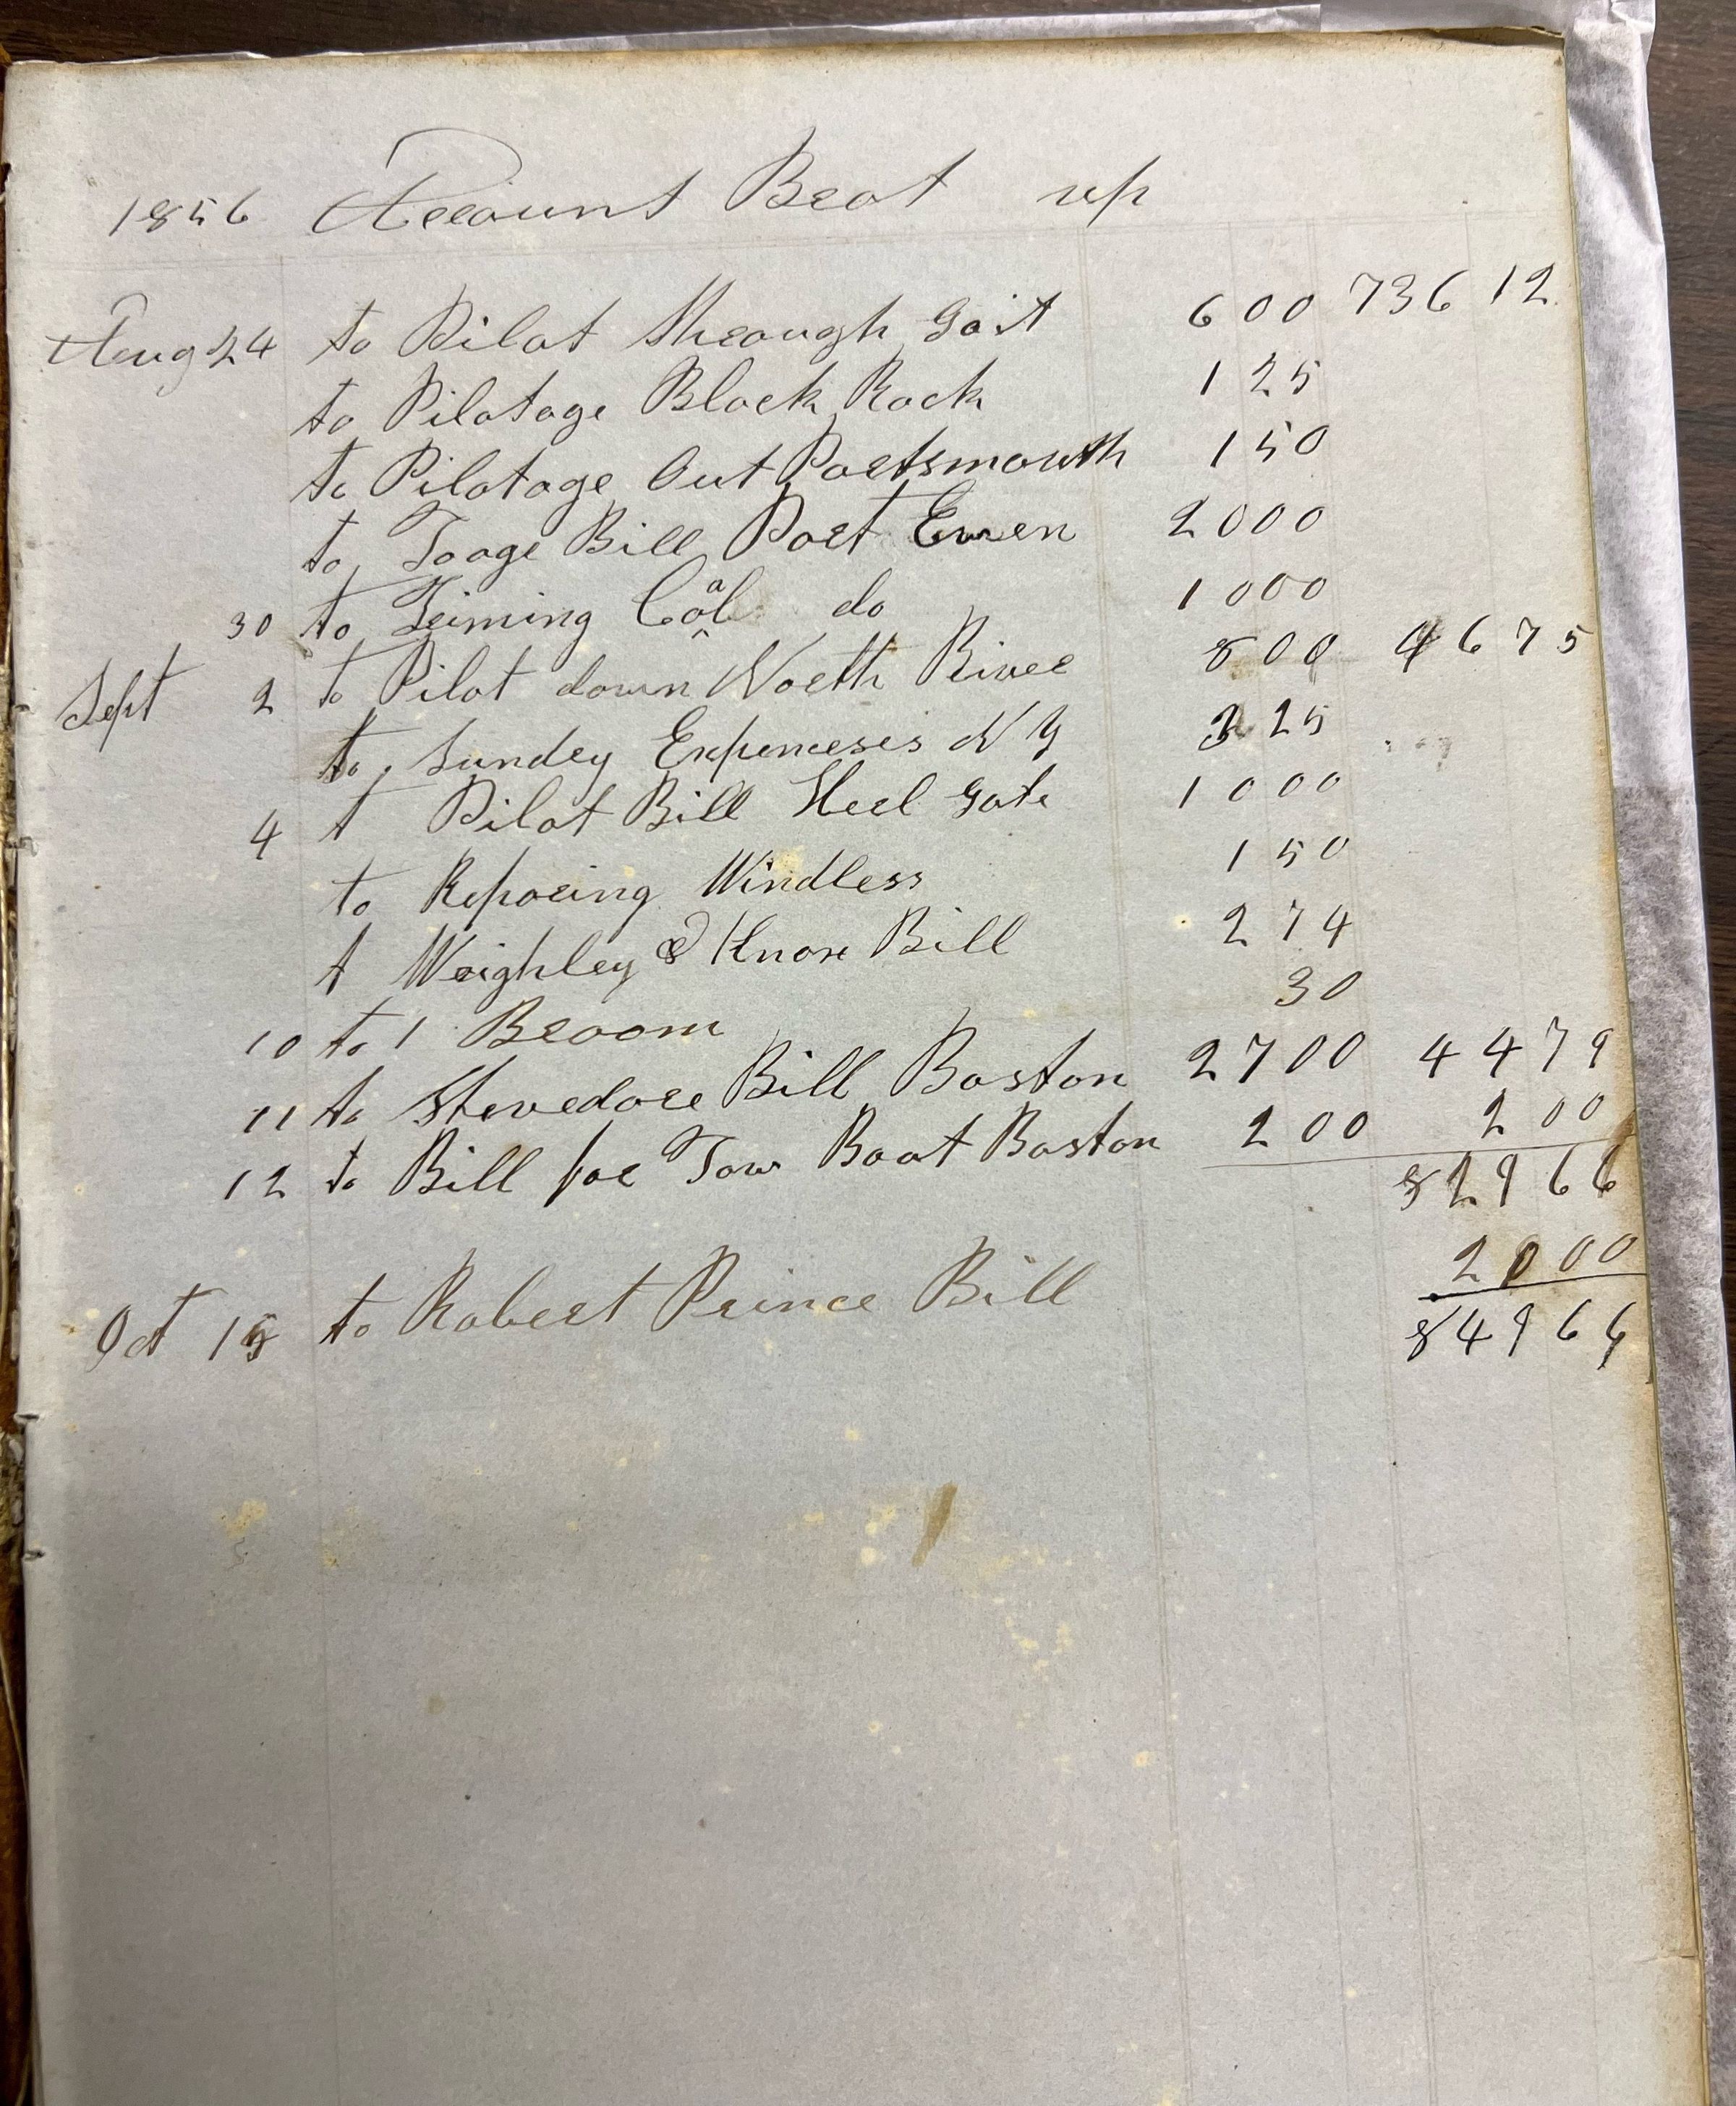 1856 Account Brot up
Aug 24 to Pilot through gait 6 00 736 12
to Pilotage Black Rock 1 25
to Pilotage Out Portsmouth 1 50
to Toage Bill Port Ewen 20 00
30 to Triming Coal do 10 00
Sept 2 to Pilot down North River 8 00 46 75
to Sundry Expenceses N Y 3 25
4 t Pilot Bill Herl gate 10 00
to Reparing Windless 1 50
t Weighley & Knox Bill 2 74
10 to 1 Broom 30
11 to Stevedore Bill Boston 27 00 44 79
12 to Bill for Tow Boat Boston 2 00 2 00
829 66
Oct 15 to Robert Prince Bill 20 00
849 66